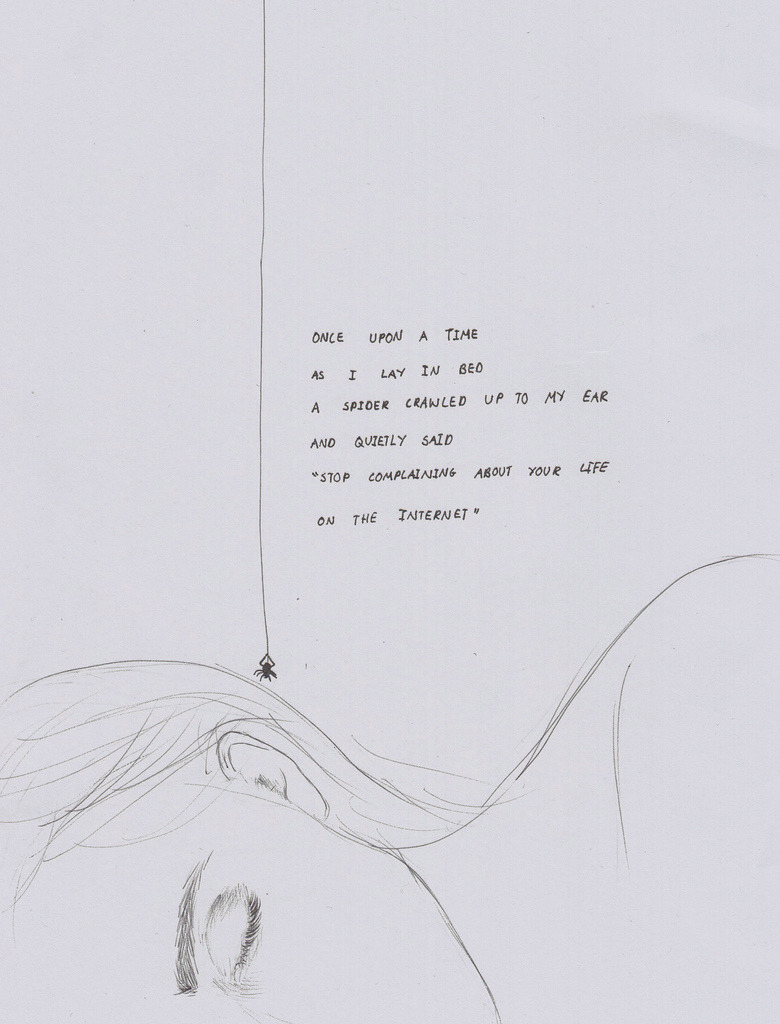 ONCE UPON A TIME
AS I LAY IN BED
A SPIDER CRAWLED UP TO MY EAR
AND QUIETLY SAID
"STOP COMPLAINING ABOUT YOUR LIFE
ON THE INTERNET"